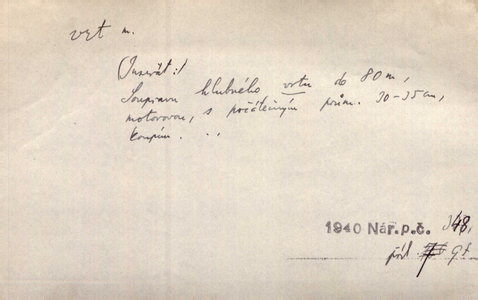 vrt m.
(Inserát:)
Soupravu hlubného vrtu do 80 m,
motorovou, s počátečným prům. 30-35 cm,
koupím. ..
1940 Nár.p.č. 348,